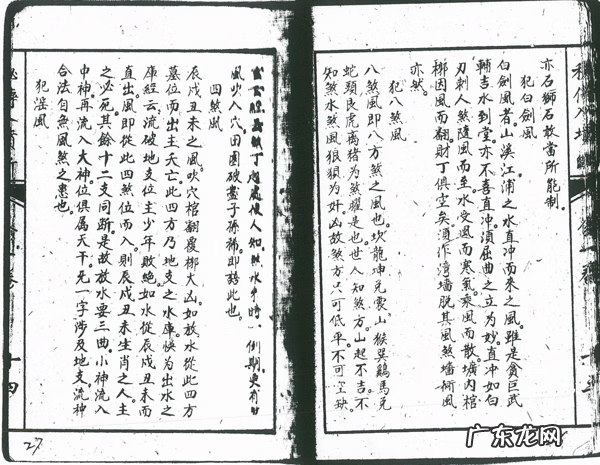 亦石獅石敢當所能制。
犯白劍風
白劍風者山溪江浦之水直冲而來之風。雖是貪巨武
輔吉水到堂。亦不喜直冲須屈曲之立為妙。直冲如白
刃刺人煞隨風而至水受風而寒氣乘風而散。壙內棺
槨因風而翻財丁俱空矣須作灣墻脫其風煞墻何風
亦然。
犯八煞風
八煞風即八方煞之風也。坎龍坤兔震山猴巽鷄馬兌
蛇頭艮虎离猪為煞耀是也世人知煞方。山起不吉。不
知煞水煞風狼狽為奸。凶故煞方只可低平不可空缺。
風吹入穴。田園破盡子孫稀。即謂此也。
四煞風
辰戌丑未之風。吹穴棺翻屍槨大凶。如放水從此四方
墓位而出主夭亡此四方乃地支之水庫。快為出水之
庫經云流破地支位主少年敗絕。如水從辰戌丑未而
直出風即從此四煞位而入。則辰戌丑未生肖之人。主
之必死。其餘十二支同斷。是故放水要三曲。小神流入
中神。再流入大神。位俱屬天干。无一字涉及地支流神
合法自無風煞之患也。
犯淫風
27
广东龙网